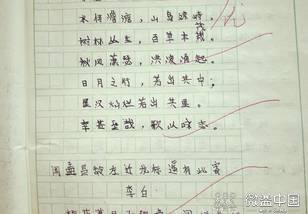 水何澹澹，山岛竦峙。
树木丛生，百草丰茂。
秋风萧瑟，洪波涌起。
日月之行，若出其中；
星汉灿烂若出其里。
幸甚至哉，歌以咏志。
闻王昌龄左迁龙标遥有此寄
李白
微益中国